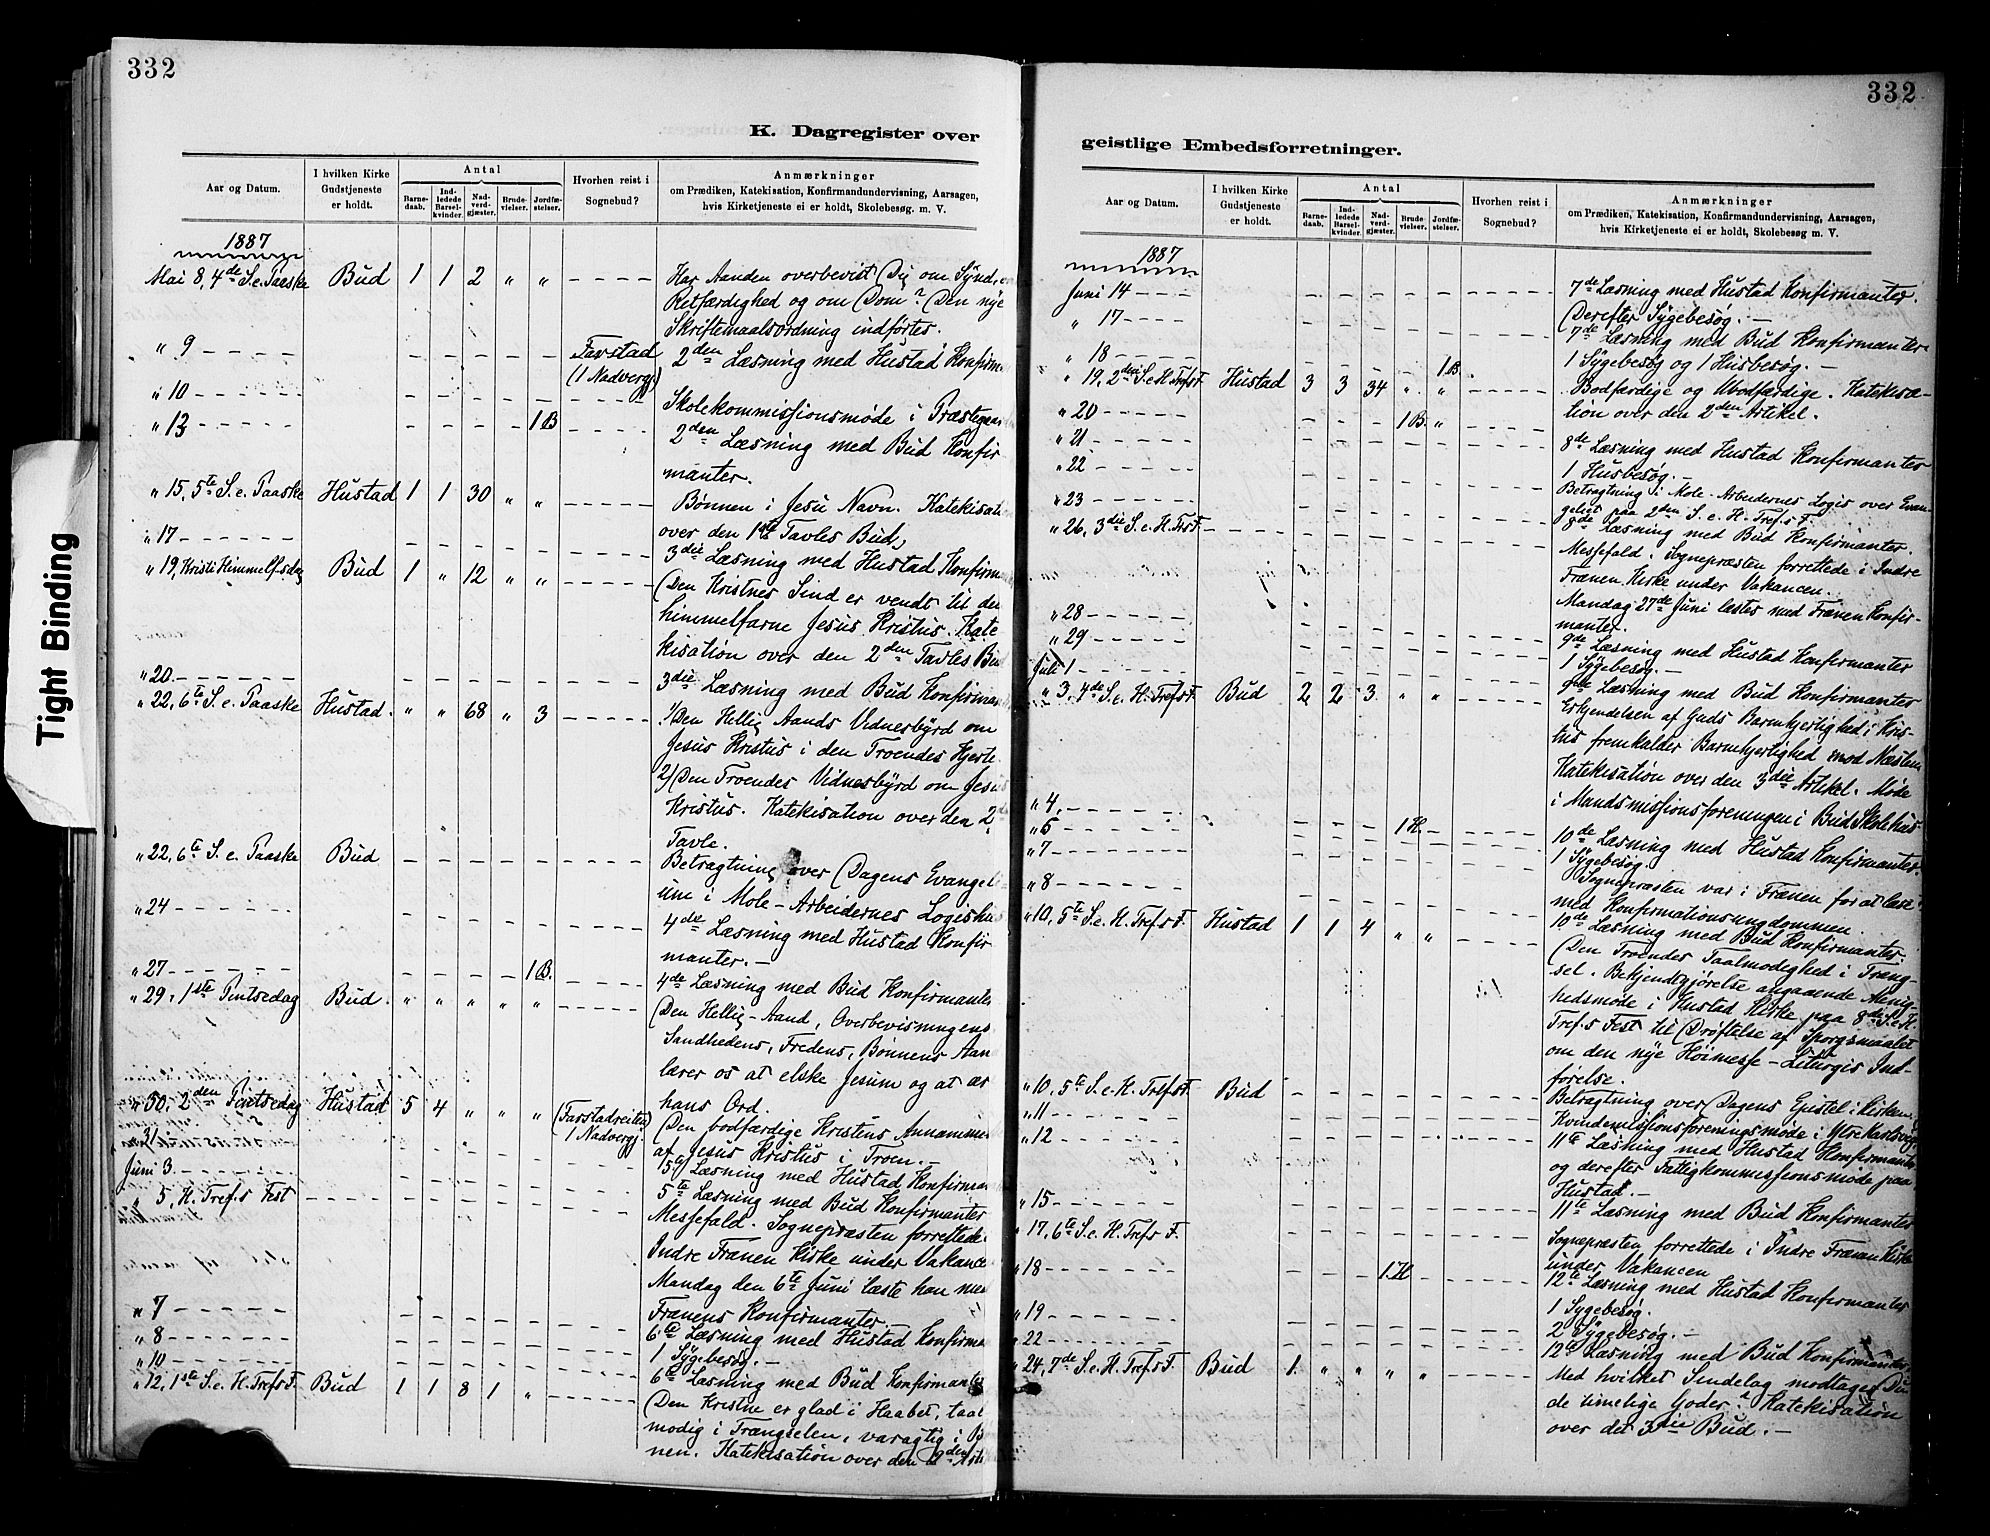 332
K. Dagregister over
Aar og Datum.
I hvilken Kirke Gudstjeneste er holdt.
Antal
Barnedaab.
Indledede Barselkvinder.
Nadverdgjæster.
Brudevielser.
Jordfæstelser.
Hvorhen reist i Sognebud?
Anmærkninger
om Prædiken, Katekisation, Konfirmandundervisning, Aarsagen,
hvis Kirketjeneste ei er holdt, Skolebesøg. m. V.
1887
Mai 8, 4de S. e. Paaske Bud 1 1 2 " " - - - - Har Aanden overbevist Dig om Synd, om
Retfærdighed og om Dom? Den nye
Skriftemaalsordning indførtes.
" 9 - - - - Farstad (1 Nadverg.) 2den Læsning med Hustad Konfirm
" 10 - - - - Skolekommissionsmøde i Præstegaar
" 13 - - - - 1 B 2den Læsning med Bud Konfir
manter.
" 15, 5te S. e. Paaske Hustad 1 1 30 " " - - - - Bønnen i Jesu Navn. Katekisat
over den 1ste Tavles Bud.
" 17 - - - - 3die Læsning med Hustad Konfirm
" 19, Kristi Himmelfsdag Bud 1 " 12 " " - - - - Den Kristnes Sind er vendt til den
himmelfarne Jesus Kristus. Kate
kisation over den 2den Tavles Bud
" 20 - - - - 3die Læsning med Bud Konfirman
" 22, 6te S. e. Paaske Hustad. " " 68 " 3 - - - - 1/ Den Hellig Aands Vidnesbyrd om
Jesus Kristus i den Troendes Hjerte
2/ Den Troendes Vidnesbyrd om Jesus
Kristus. Katekisation over den 2den
Tavle.
" 22, 6te S. e. Paaske Bud - - - - Betragtning over Dagens Evangeli
um i Mole-Arbeidernes Logishus
" 24 - - - - 4de Læsning med Hustad Konfir
manter. -
" 27 - - - - 1 B. 4de Læsning med Bud Konfirmanter
" 29, 1ste Pintsedag Bud. " " " " " - - - - Den Hellig-Aand, Overbevisningens
Sandhedens, Fredens, Bønnens Aan
lærer os at elske Jesum og at ær
hans Ord.
" 30, 2den Pintsedag Hustad 5 4 " " " (Farstadreiten 1 Nadverg.) Den bodfærdige Kristens Annamme
af Jesus Kristus i Troen. -
" 31 - - - - Læsning med Hustad Konfirman
Juni 3 - - - - 5te Læsning med Bud Konfirmanter
" 5, H. Tref.s Fest - - - - Messefald. Sognepræsten forrettede
Indre Frænen Kirke under Vakance
Mandag den 6te Juni læste han med
Frænens Konfirmanter.
" 7 - - - - 6te Læsning med Hustad Konfirma
" 8 - - - - 1 Sygebesøg. -
" 10 - - - - 6te Læsning med Bud Konfirmanter
" 12, 1ste S. e. H. Tref.s F. Bud 1 1 8 1 " - - - - Den Kristne er glad i Haabet, taal
modig i Trængselen, varagtig i Bøn
nen. Katekisation over den 2den Arti
332
geistlige Embedsforretninger.
Aar og Datum.
I hvilken Kirke Gudstjeneste er holdt.
Antal
Barnedaab.
Indledede Barselkvinder.
Nadverdgjæster.
Brudevielser.
Jordfæstelser.
Hvorhen reist i Sognebud?
Anmærkninger
om Prædiken, Katekisation, Konfirmandundervisning, Aarsagen,
hvis Kirketjeneste ei er holdt, Skolebesøg m. V.
1887
Juni 14 - - - - 7de Læsning med Hustad Konfirmanter.
Derefter Sygebesøg. -
" 17 - - - - 7de Læsning med Bud Konfirmanter
" 18 - - - - 1 B. 1 Sygebesøg og 1 Husbesøg. -
" 19, 2den S. e. H. Tref.s F. Hustad 3 3 34 " " - - - - Bodfærdige og Ubodfærdige. Katekisa-
tion over den 2den Artikel.
" 20 - - - - 1 B. "
" 21 - - - - 8de Læsning med Hustad Konfirmanter
" 22 - - - - 1 Husbesøg. -
Betragtning i Mole-Arbeidernes Logis over Evan-
geliet paa 2den S. e. H. Tref.s F.
" 23 - - - - 8de Læsning med Bud Konfirmanter.
" 26, 3die S. e. H. Trf.s F. - - - - Messefald. Sognepræsten forrettede i Indre
Frænen Kirke under Vakancen.
Mandag 27de Juni læstes med Frænen Konfir-
manter.
" 28 - - - - 9de Læsning med Hustad Konfirmanter
" 29 - - - - 1 Sygebesøg. -
Juli 1 - - - - 9de Læsning med Bud Konfirmanter
" 3, 4de S. e. H. Tref.s F. Bud 2 2 3 " " Erkjendelsen af Guds Barmhjertighed i Kris-
tus fremkalder Barmhjertighed mod Næsten
Katekisation over den 3die Artikel. Møde
i Mandsmissionsforeningen i Bud Skolehus
" 4 - - - -
" 5 - - - - 1 H. - 10de Læsning med Hustad Konfirmanter.
" 7 - - - - 1 Sygebesøg.
Sognepræsten var i Frænen for at læse
med Konfirmationsungdommen.
" 8 - - - - 10de Læsning med Bud Konfirmanter.
" 10, 5te S. e. H. Tref.s F. Hustad 1 1 4 " " - - - - Den Troendes Taalmodighed i Træng-
sel. Bekjendtgjørelse angaaende Menig-
hedsmøde i Hustad Kirke paa 8de S. e. H.
Tref.s Fest til Drøftelse af Spørgsmaalet
om den nye Høimesse-Liturgis Ind-
førelse.
" 10, 5te S. e. H. Tref.s F. Bud - - - - Betragtning over Dagens Epistel i Kirken.
" 11 - - - - Kvindemissionsforeningsmøde i Ytre
" 12 - - - - 11te Læsning med Hustad Konfirmanter
og derefter Fattigkommissionsmøde paa
Hustad. -
" 15 - - - - 11te Læsning med Bud Konfirmanter
" 17, 6te S. e. H. Tref.s F. - - - - Sognepræsten forrettede i Indre Frænen Kirke
under Vakancen
" 18 - - - - 1 H - 12te Læsning med Hustad Konfirmanter
1 Sygebesøg.
" 19 - - - - 2 Sygebesøg. -
" 22 - - - - 12te Læsning med Bud Konfirmanter.
" 24, 7de S. e. H. Tref.s F. Bud 1 " " " " - - - - Med hvilket Sindelag modtager Du
de timelige Goder? Katekisation
over det 3die Bud. -
Tight Binding